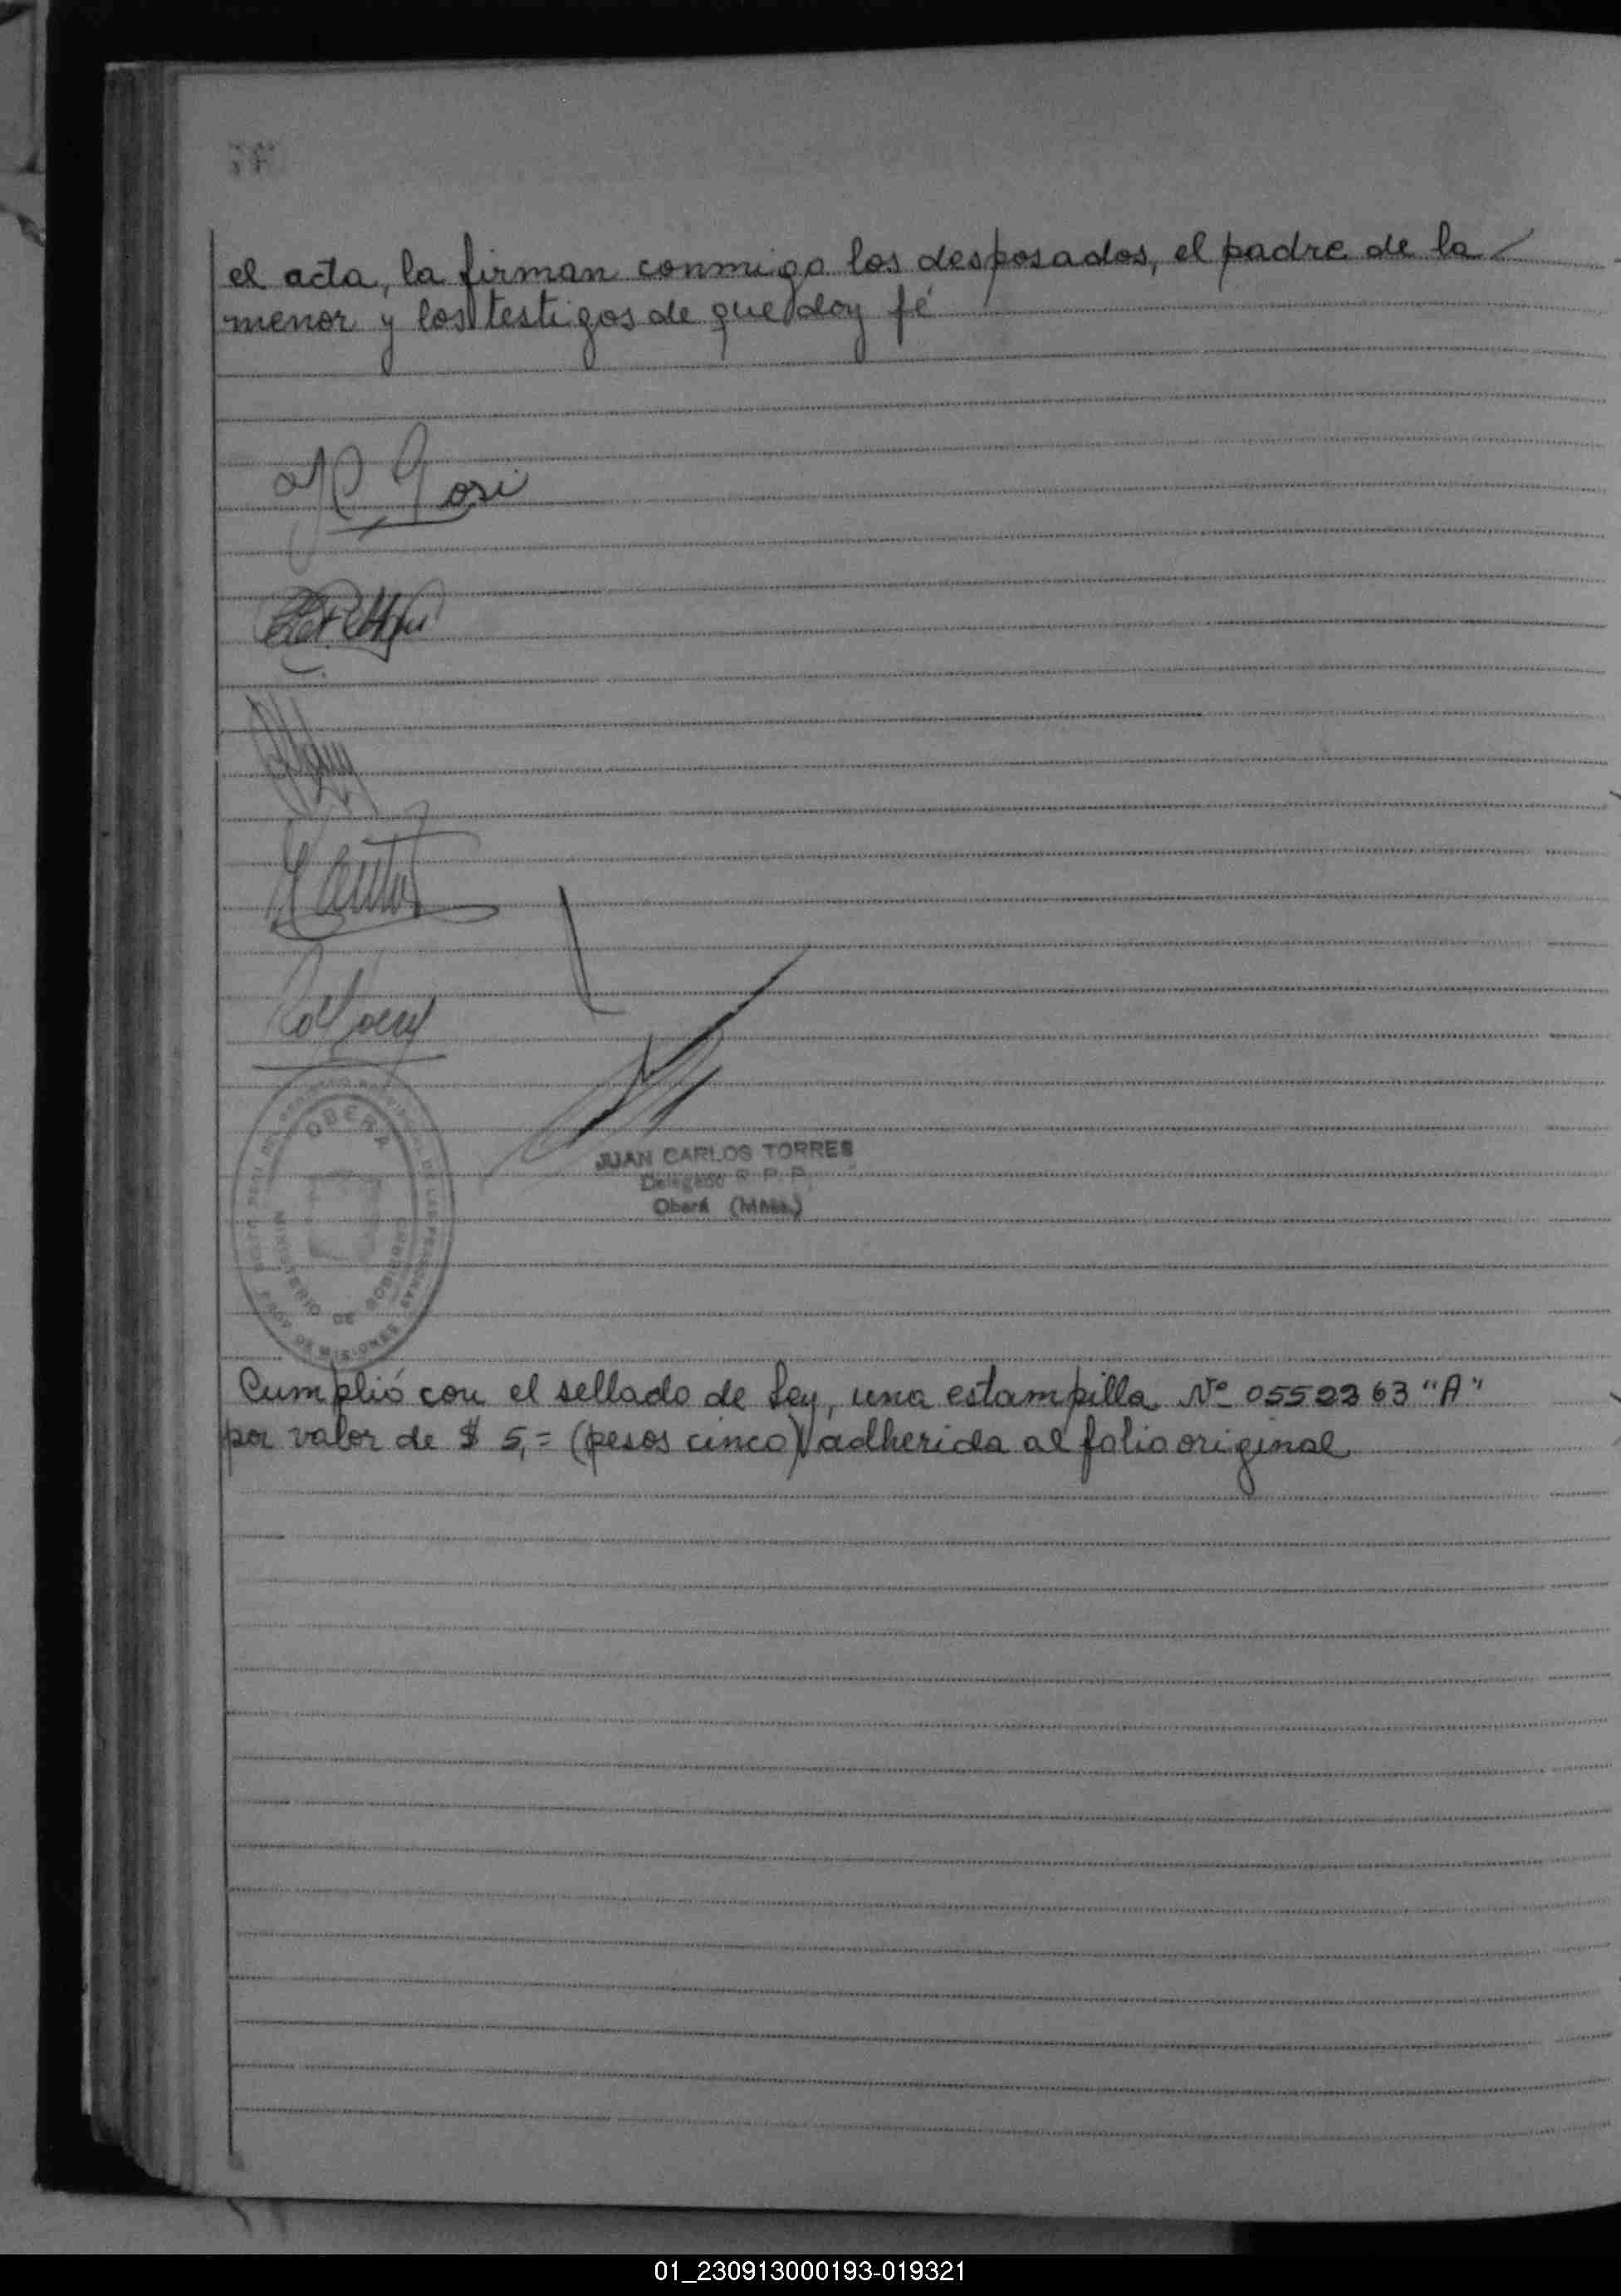 el acta, la firman conmigo los desposados, el padre de la
menor y los testigos de que doy fé
OBERA
MINISTERIO DE GOBIERNO
PROV. DE MISIONES
DE LAS PERSONAS
JUAN CARLOS TORRES
Delegado R. P. P.
Oberá (Mnes.)
Cumplió con el sellado de Ley, una estampilla Nº 0552363 "A"
por valor de $ 5,= (pesos cinco) adherida al folio original
01_230913000193-019321